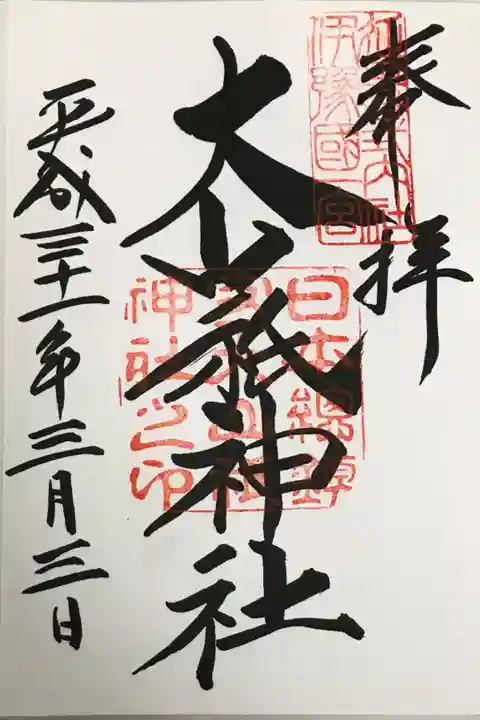 奉拝
延喜式内社
伊豫國一宮
大山祇神社
日本總鎮
守大山祇
神社之印
平成三十一年三月三日